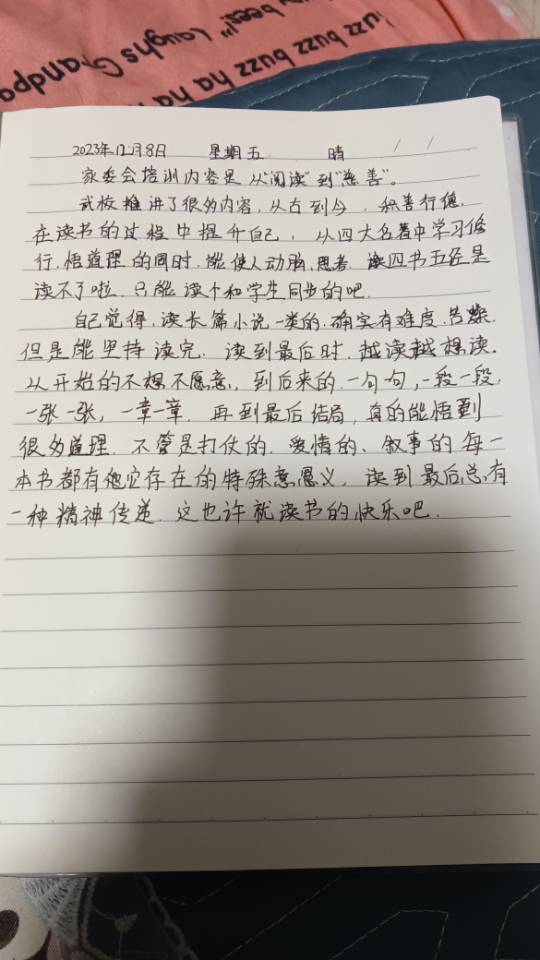 buzz buzz buzz ha ha ha
bees!" laughs Grandpa
2023年12月8日 星期五 晴
家委会培训内容是从"阅读"到"慈善"。
武校推进了很多内容,从古到今,积善行德,
在读书的过程中提升自己,从四大名著中学习修
行,悟道理的同时,能使人动脑,思考,读四书五经是
读不了啦,只能读个和学生同步的吧.
自己觉得,读长篇小说一类的,确实有难度,苦燥
但是能坚持读完,读到最后时,越读越想读.
从开始的不想不愿意,到后来的,一句句,一段一段,
一张一张,一章一章,再到最后结局,真的能悟到
很多道理.不管是打仗的、爱情的、叙事的每一
本书都有他它存在的特殊意愿义,读到最后,总有
一种精神传递.这也许就读书的快乐吧.